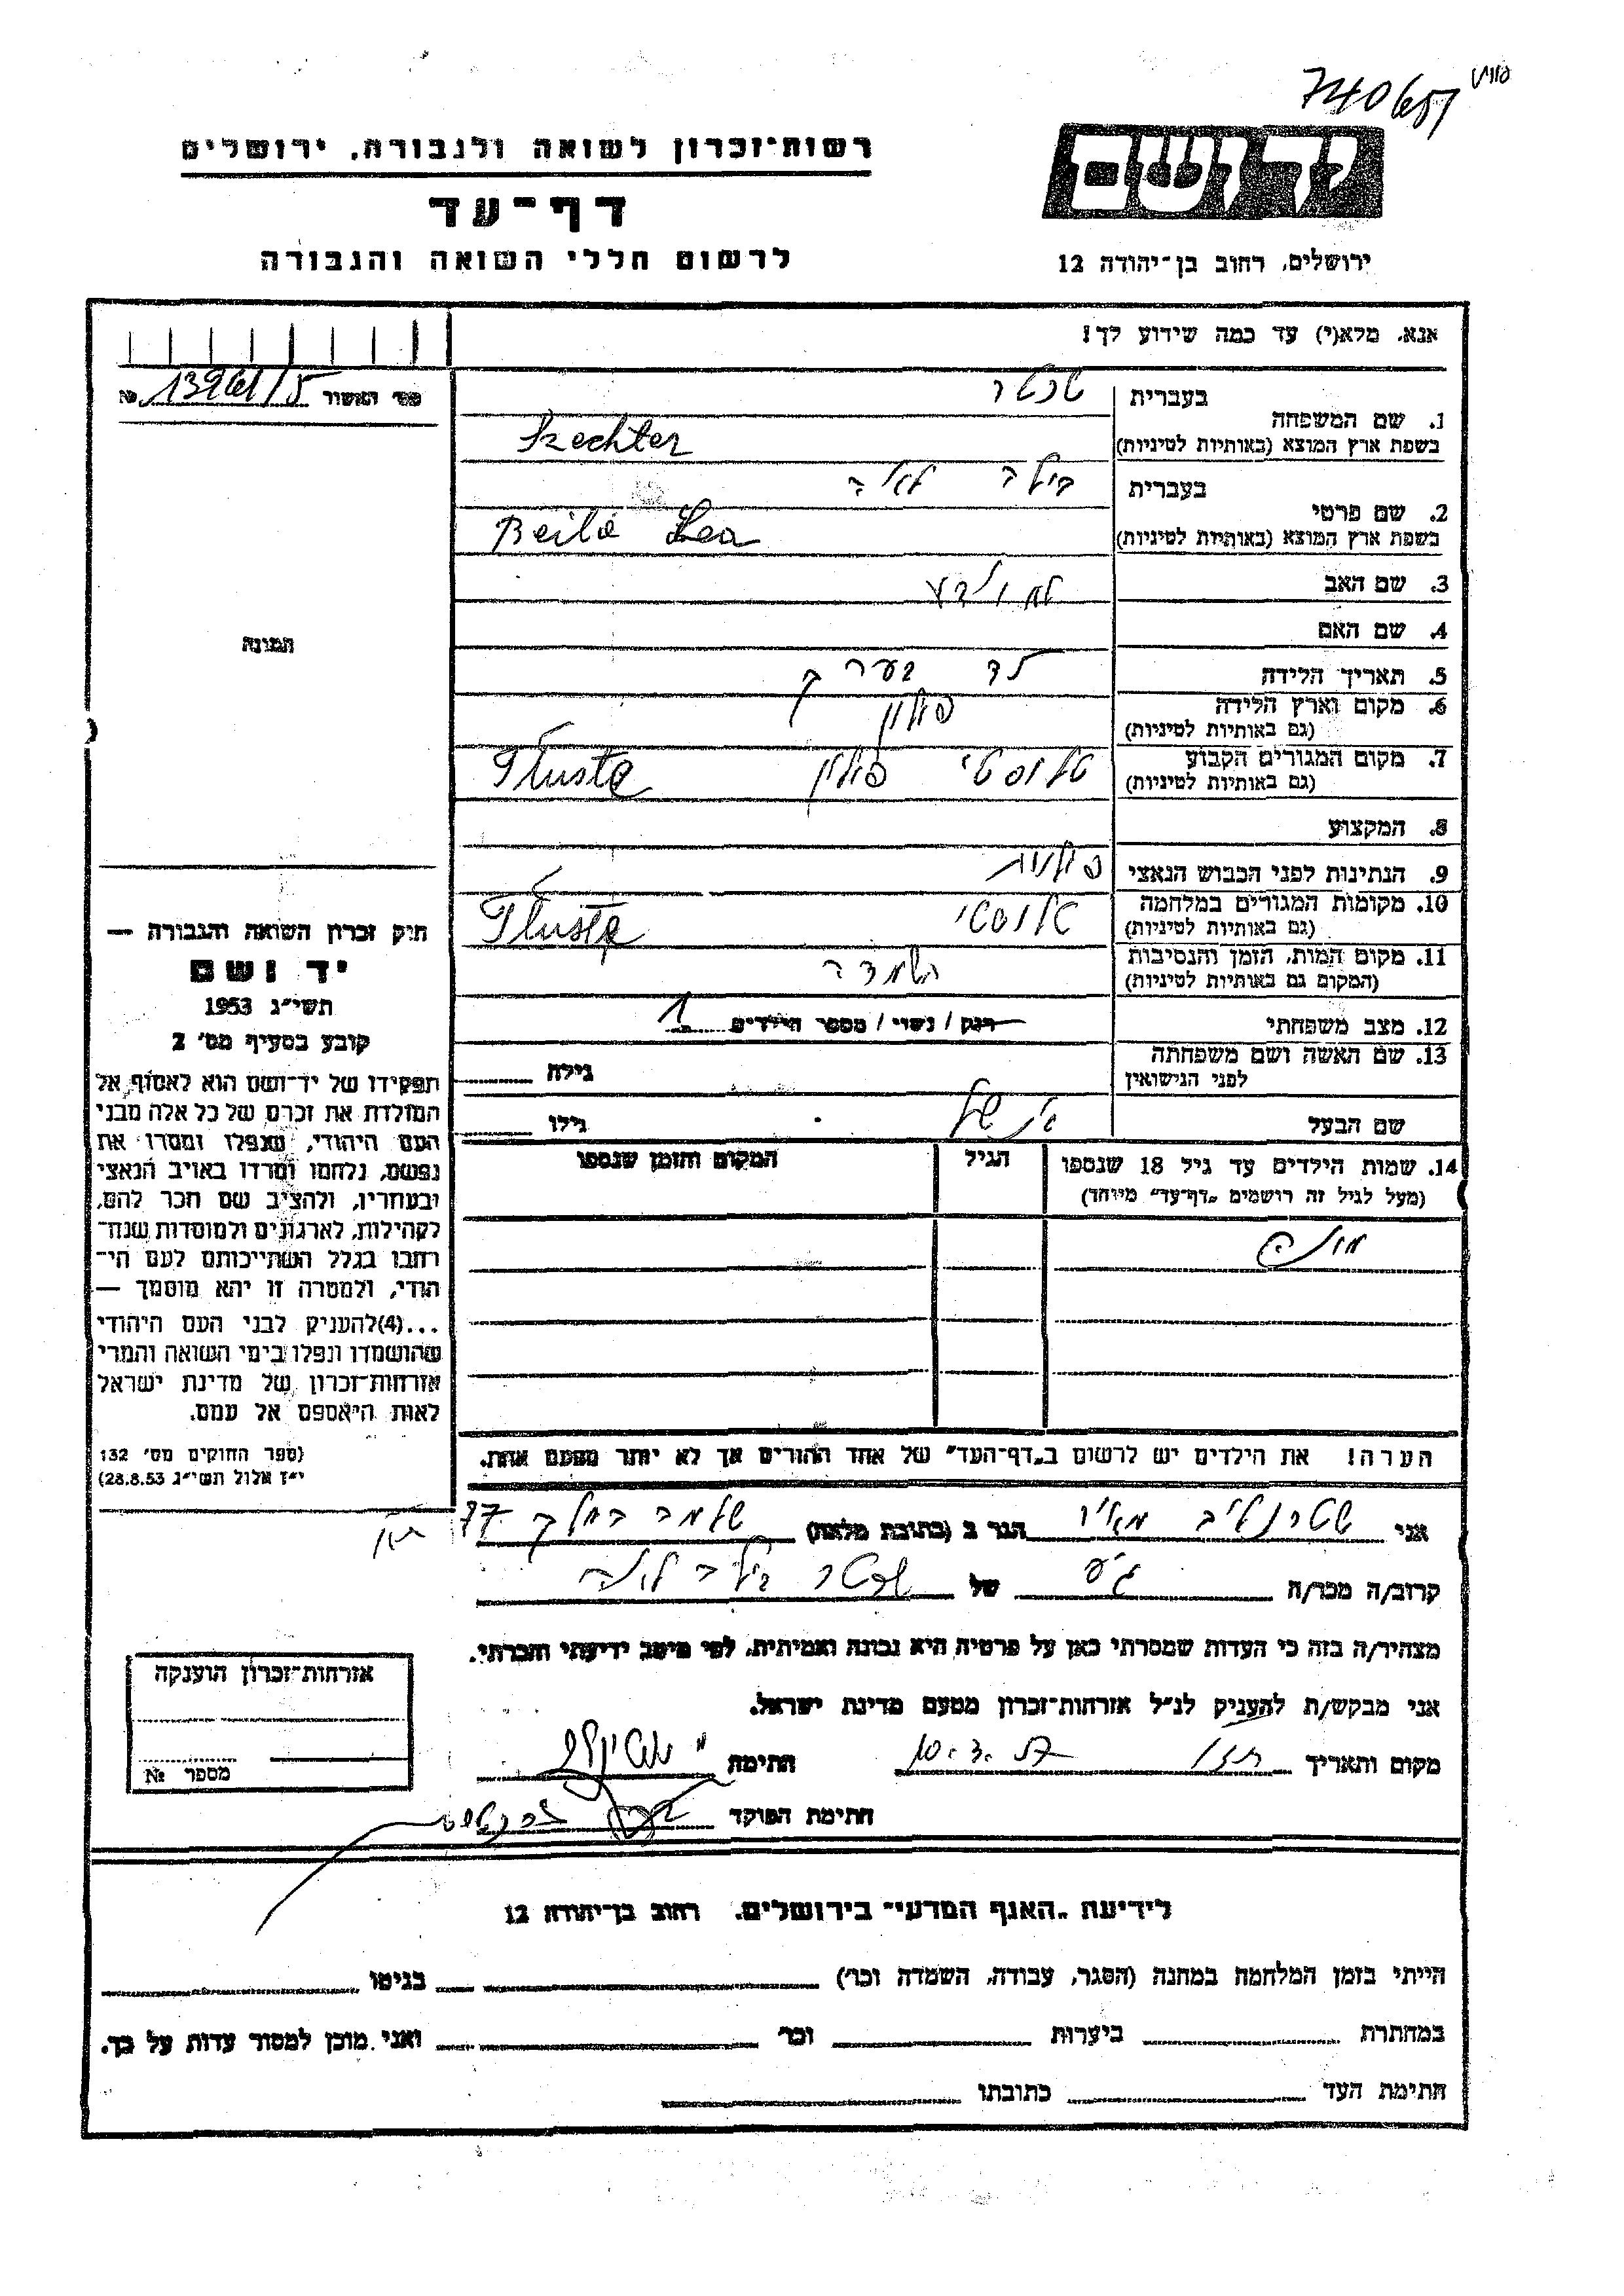 740651
רשות־זכרון לשואה ולגבורה, ירושלים
דף־עד
לרשום חללי השואה והגבורה
יד ושם
ירושלים, רחוב בן־יהודה 12
אנא, מלא(י) עד כמה שידוע לך!
מס׳ האשור № 13961/5
תמונה
1. שם המשפחה בעברית שכטר
בשפת ארץ המוצא (באותיות לטיניות) Szechter
2. שם פרטי בעברית ביילה לאה
בשפת ארץ המוצא (באותיות לטיניות) Beila Lea
3. שם האב
4. שם האם
5. תאריך הלידה
6. מקום וארץ הלידה פולין
(גם באותיות לטיניות)
7. מקום המגורים הקבוע טלוסטי פולין Tłuste
(גם באותיות לטיניות)
8. המקצוע
9. הנתינות לפני הכבוש הנאצי פולנית
10. מקומות המגורים במלחמה טלוסטי Tłuste
(גם באותיות לטיניות)
11. מקום המות, הזמן והנסיבות השמדה
(המקום גם באותיות לטיניות)
12. מצב משפחתי רוק / נשוי / מספר הילדים 1
13. שם האשה ושם משפחתה גילה
לפני הנישואין
שם הבעל גילו
14. שמות הילדים עד גיל 18 שנספו הגיל המקום והזמן שנספו
(מעל לגיל זה רושמים „דף־עד״ מיוחד)
הערה! את הילדים יש לרשום ב„דף־העד״ של אחד ההורים אך לא יותר מפעם אחת.
חוק זכרון השואה והגבורה —
יד ושם
תשי״ג 1953
קובע בסעיף מס׳ 2
תפקידו של יד־ושם הוא לאסוף אל
המולדת את זכרם של כל אלה מבני
העם היהודי, שנפלו ומסרו את
נפשם, נלחמו ומרדו באויב הנאצי
ובעוזריו, ולהציב שם וזכר להם,
לקהילות, לארגונים ולמוסדות שנח־
רבו בגלל השתייכותם לעם הי־
הודי, ולמטרה זו יהא מוסמך —
...(4)להעניק לבני העם היהודי
שהושמדו ונפלו בימי השואה והמרי
אזרחות־זכרון של מדינת ישראל
לאות היאספם אל עמם.
(ספר החוקים מס׳ 132
י״ז אלול תשי״ג 28.8.53)
אני שטרנליב מאיר הגר ב (כתובת מלאה) שלמה המלך 77 ת״א
קרוב/ה מכר/ה של שכטר ביילה לאה
מצהיר/ה בזה כי העדות שמסרתי כאן על פרטיה היא נכונה ואמיתית, לפי מיטב ידיעתי והכרתי.
אני מבקש/ת להעניק לנ״ל אזרחות־זכרון מטעם מדינת ישראל.
מקום ותאריך 10.3.57 חתימה
חתימת הפוקד
אזרחות־זכרון הוענקה
מספר №
לידיעת „האגף המדעי״ בירושלים, רחוב בן־יהודה 12
הייתי בזמן המלחמה במחנה (הסגר, עבודה, השמדה וכו׳) בגיטו
במחתרת ביערות וכו׳ ואני מוכן למסור עדות על כך.
חתימת העד כתובתו